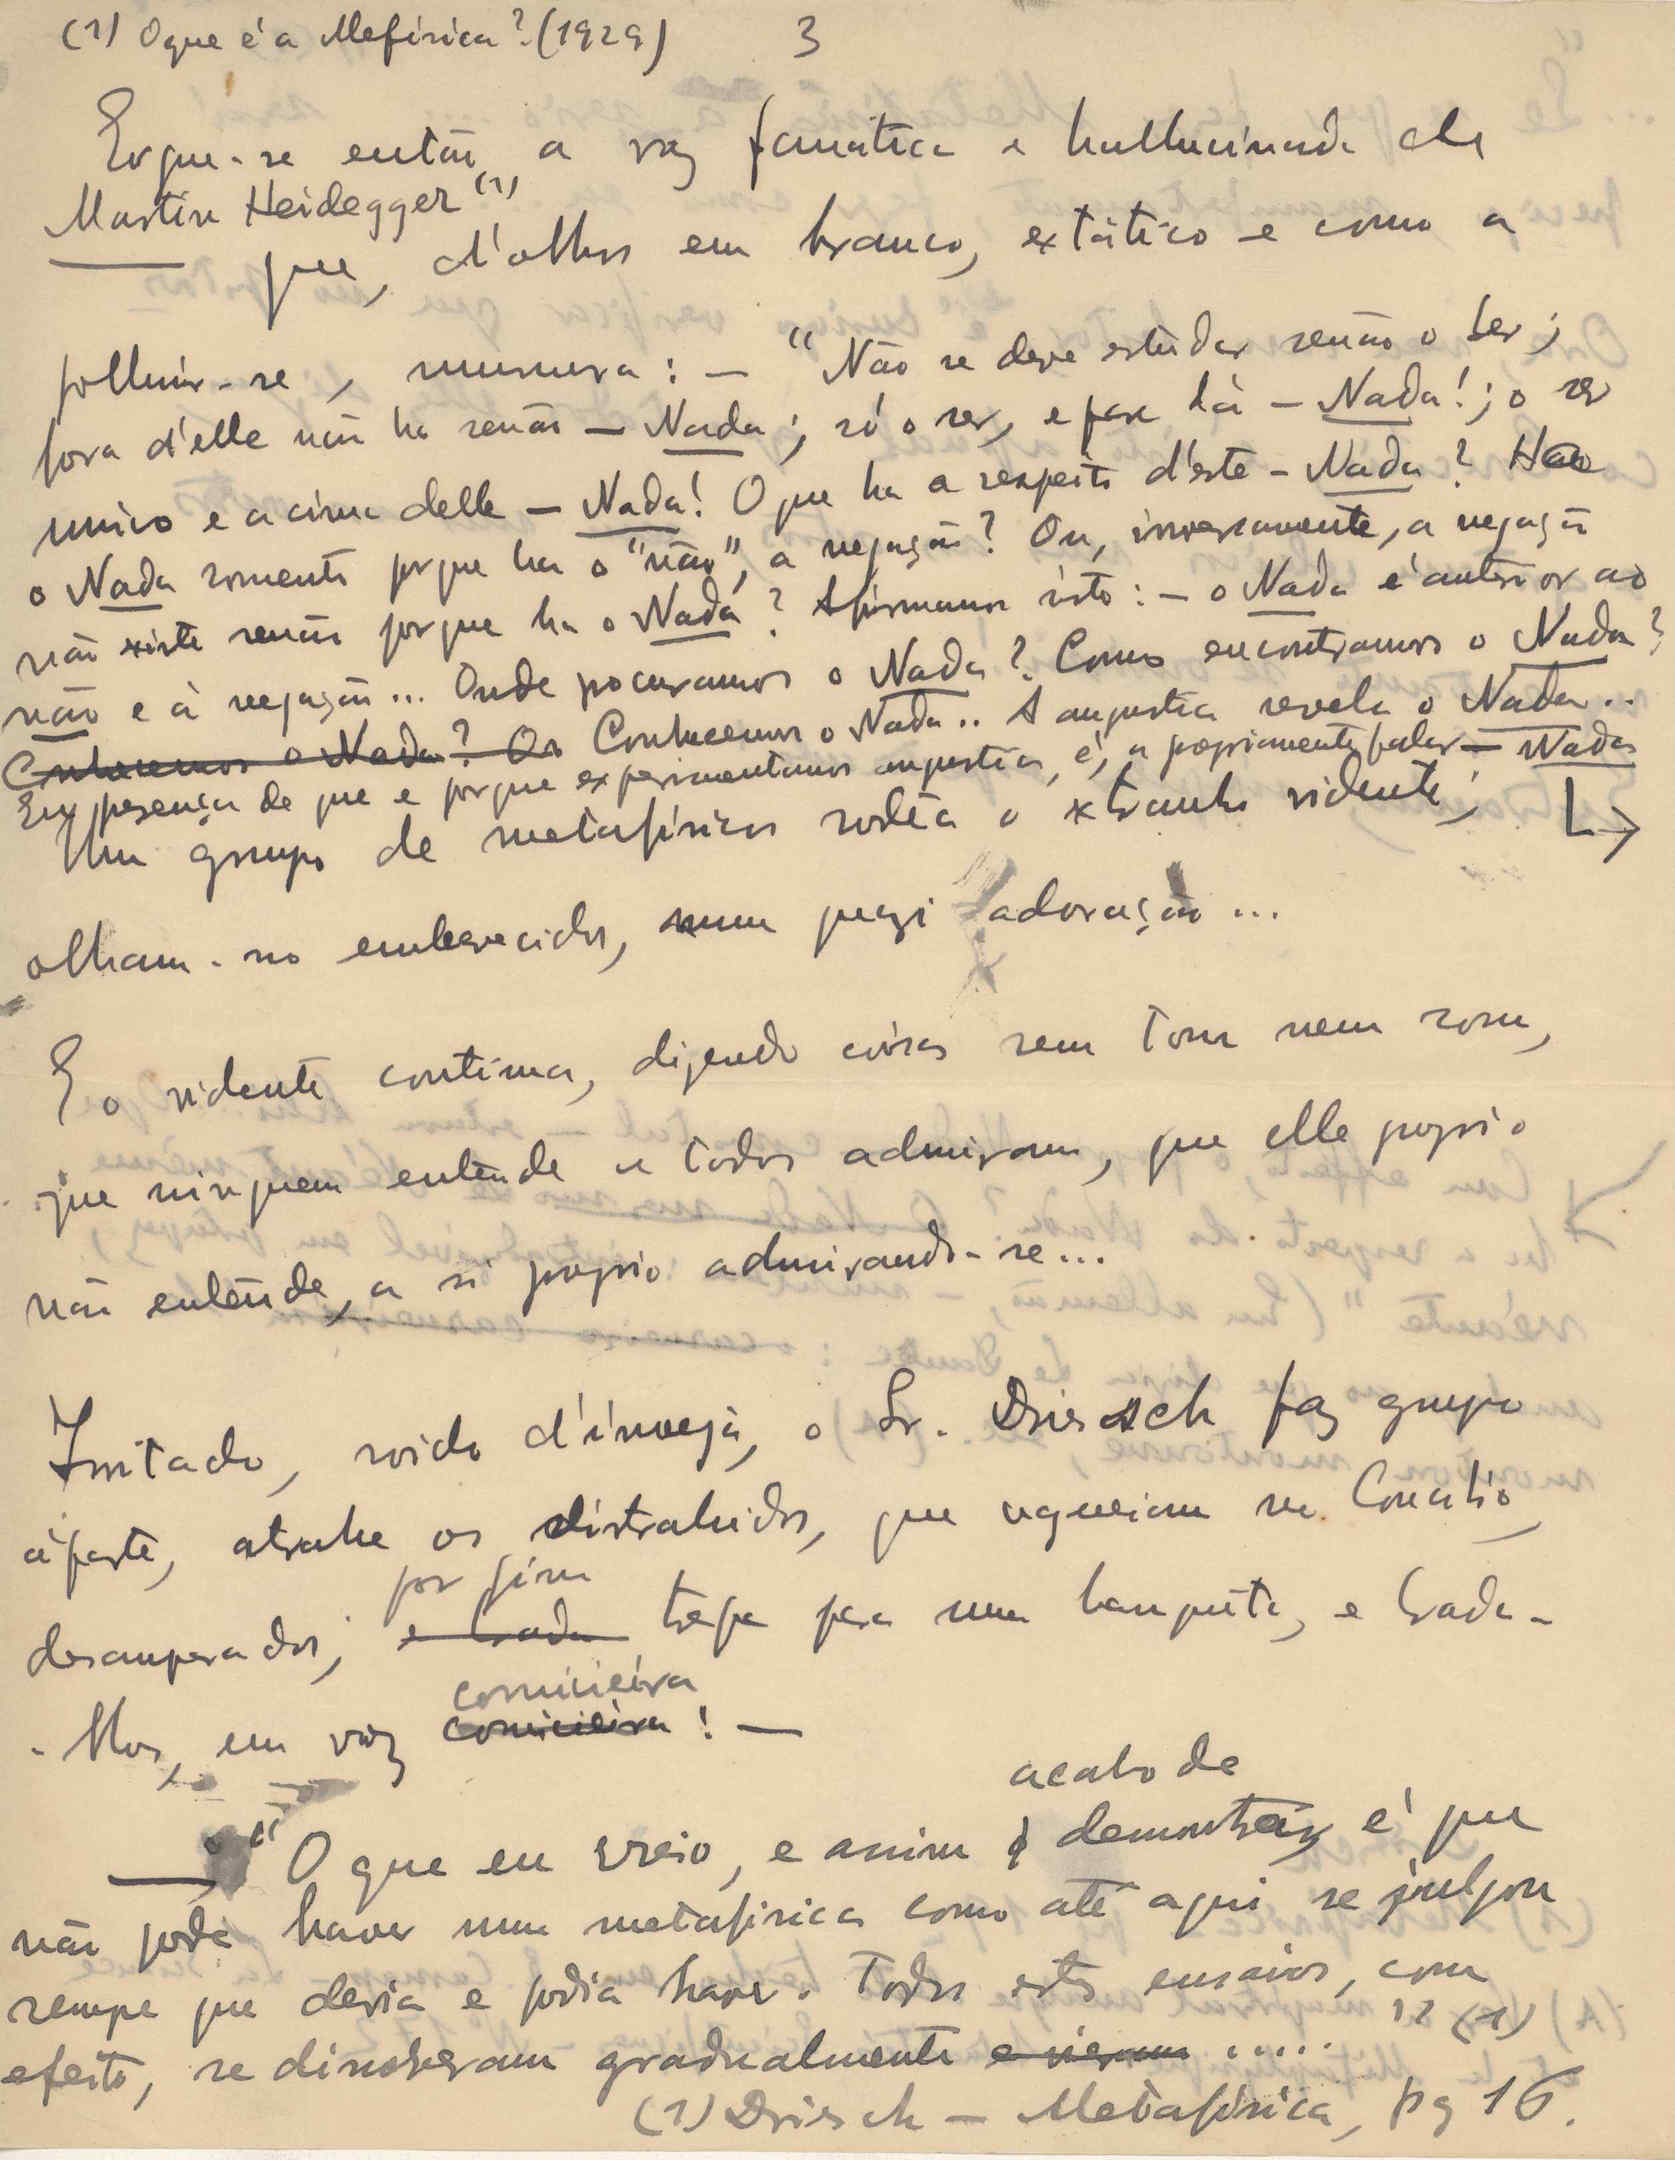 (1) O que é a Metafísica? (1929) 3
Ergue-se então a voz fanatica e hallucinada de
Martin Heidegger (1)
que, d'olhos em branco, extático e como a
polluir-se, murmura: — "Não se deve estudar senão o ser;
fora d'elle não ha senão — Nada; só o ser, e para lá — Nada!; o ser
unico e acima delle — Nada! O que ha a respeito d'este — Nada? Ha
o Nada somente porque ha o "não", a negação? Ou, inversamente, a negação
não existe senão porque ha o Nada? Afirmamos isto: — o Nada é anterior ao
não e à negação... Onde procuramos o Nada? Como encontramos o Nada?
Conhecemos o Nada? Conhecemos o Nada.. A angustia revela o Nada..
Em presença de que e porque experimentamos angustia, é, a propriamente falar — Nada
Um grupo de metafísicos rodêa o extranho vidente;
olham-no embevecidos, numa quazi adoração...
E o vidente contínua, dizendo coisas sem tom nem som,
que ninguem entende e todos admiram, que elle proprio
não entende, a si proprio admirando-se...
Irritado, roido d'inveja, o Sr. Driesch faz grupo
àparte, atrahe os distrahidos, que vagueiam no Concilio,
desamparados; e brada por fim trepa para uma banquêta, e brada-
-lhes, em voz comicieira comicieira! —
— "O que eu creio, e assim acabo de demonstrar, é que
não pode haver uma metafisica como até aqui se julgou
sempre que devia e podia haver. Todos estes ensaios, com
efeito, se dissolveram gradualmente e vieram ....." (1)
(1) Driesch — Metafísica, pg 16.